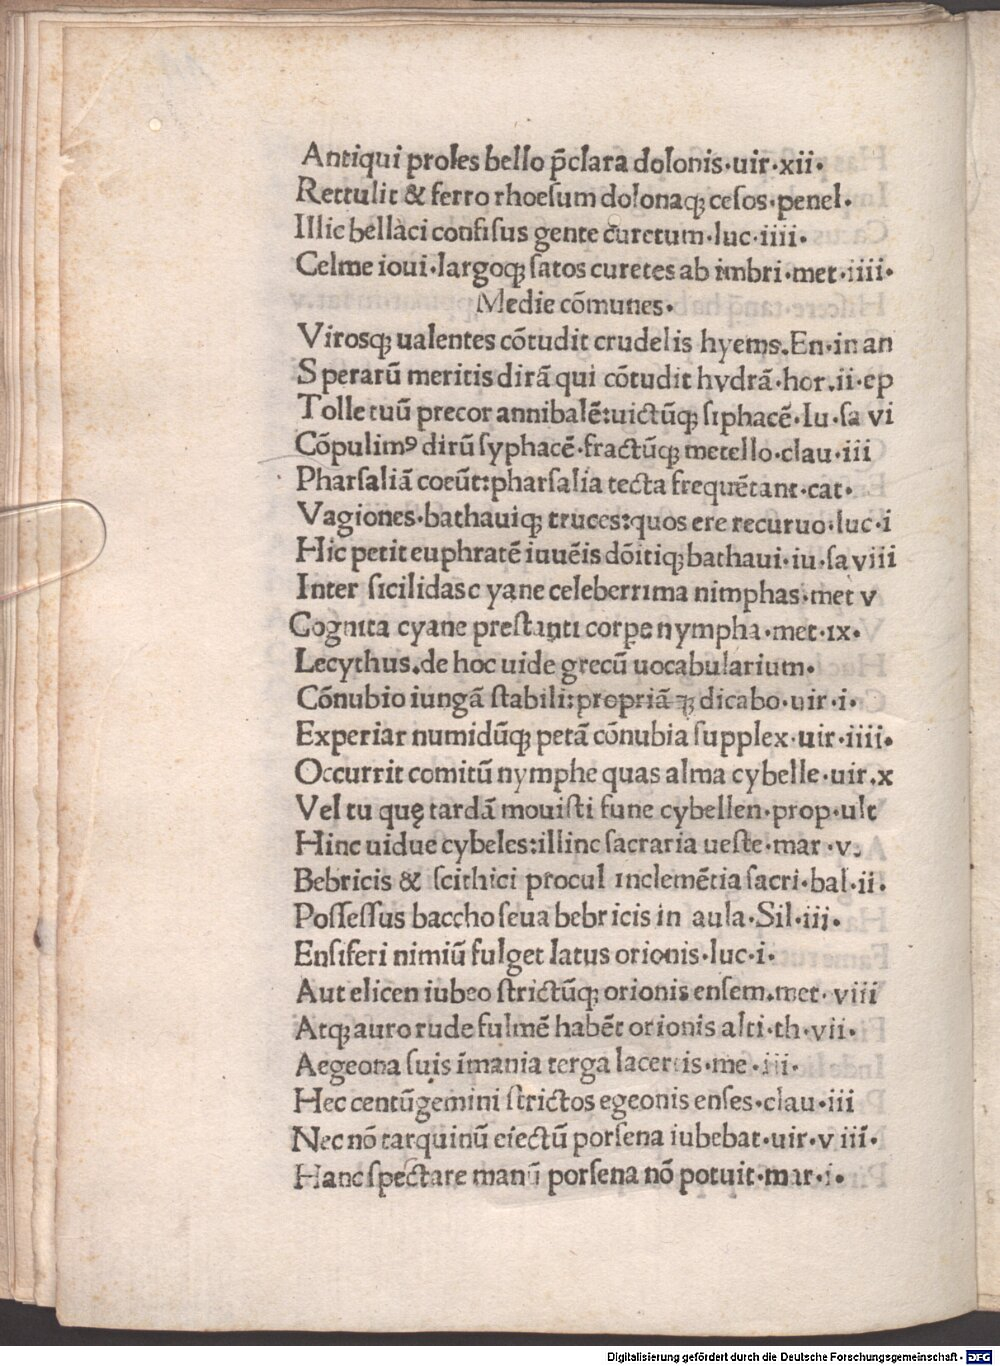 Antiqui proles bello p̄clara dolonis·uir·xii·
Rettulit & ferro rhoesum dolonaqꝫ cesos·penel·
Illic bellàci confisus gente curetum·luc·iiii·
Celme ioui·largoqꝫ satos curetes ab imbri·met·iiii·
Medie cōmunes·
Virosqꝫ ualentes cōtudit crudelis hyems.En·in an
Speratū meritis dirā qui cōtudit hydrā·hor.ii·ep
Tolle tuū precor annibalē:uictūqꝫ siphacē·Iu·sa vi
Cōpulimꝰ dirū syphacē·fractūqꝫ metello·clau·iii
Pharsaliā coeūt:pharsalia tecta frequētant·cat·
Vagiones·bathauiqꝫ truces:quos ere recuruo·luc·i
Hic petit euphratē iuuēis dōitiqꝫ bathaui·iu·sa viii
Inter sicilidas c yane celeberrima nimphas·met v
Cognita cyane prestanti corpe nympha·met·ix·
Lecythus.de hoc uide grecū uocabularium·
Cōnubio iungā stabili:propriā qꝫ dicabo·uir·i·
Experiar numidūqꝫ petā cōnubia supplex·uir·iiii·
Occurrit comitū nymphe quas alma cybelle·uir.x
Vel tu quę tardā mouisti fune cybellen·prop·ult
Hinc uidue cybeles:illinc sacraria ueste·mar·v.
Bebricis & scithici procul inclemētia sacri·bal·ii.
Possessus baccho seua bebricis in aula·Sil·iii·
Ensiferi nimiū fulget latus orionis·luc·i·
Aut elicen iubeo strictūqꝫ orionis ensem.met·viii
Atqꝫ auro rude fulmē habēt orionis alti·th·vii·
Aegeona suis īmania terga lacertis·me·iii·
Hec centūgemini strictos egeonis enses·clau·iii
Nec nō tarquinū eiectū porsena iubebat·uir·v iii·
Hanc spectare manū porsena nō potuit·mar·i·
Digitalisierung gefördert durch die Deutsche Forschungsgemeinschaft - DFG